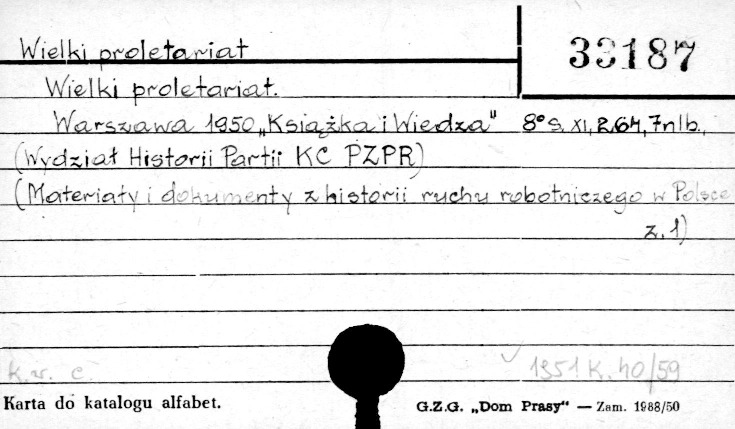 Wielki proletariat
33187
Wielki proletariat.
Warszawa 1950 „Książka i Wiedza" 8° s. XI, 264, 7 nlb.,
(Wydział Historii Partii KC PZPR)
(Materiały i dokumenty z historii ruchu robotniczego w Polsce
z. 1)
K.w. c.
1351 K. 40/59
Karta do katalogu alfabet.
G.Z.G. „Dom Prasy" — Zam. 1988/50